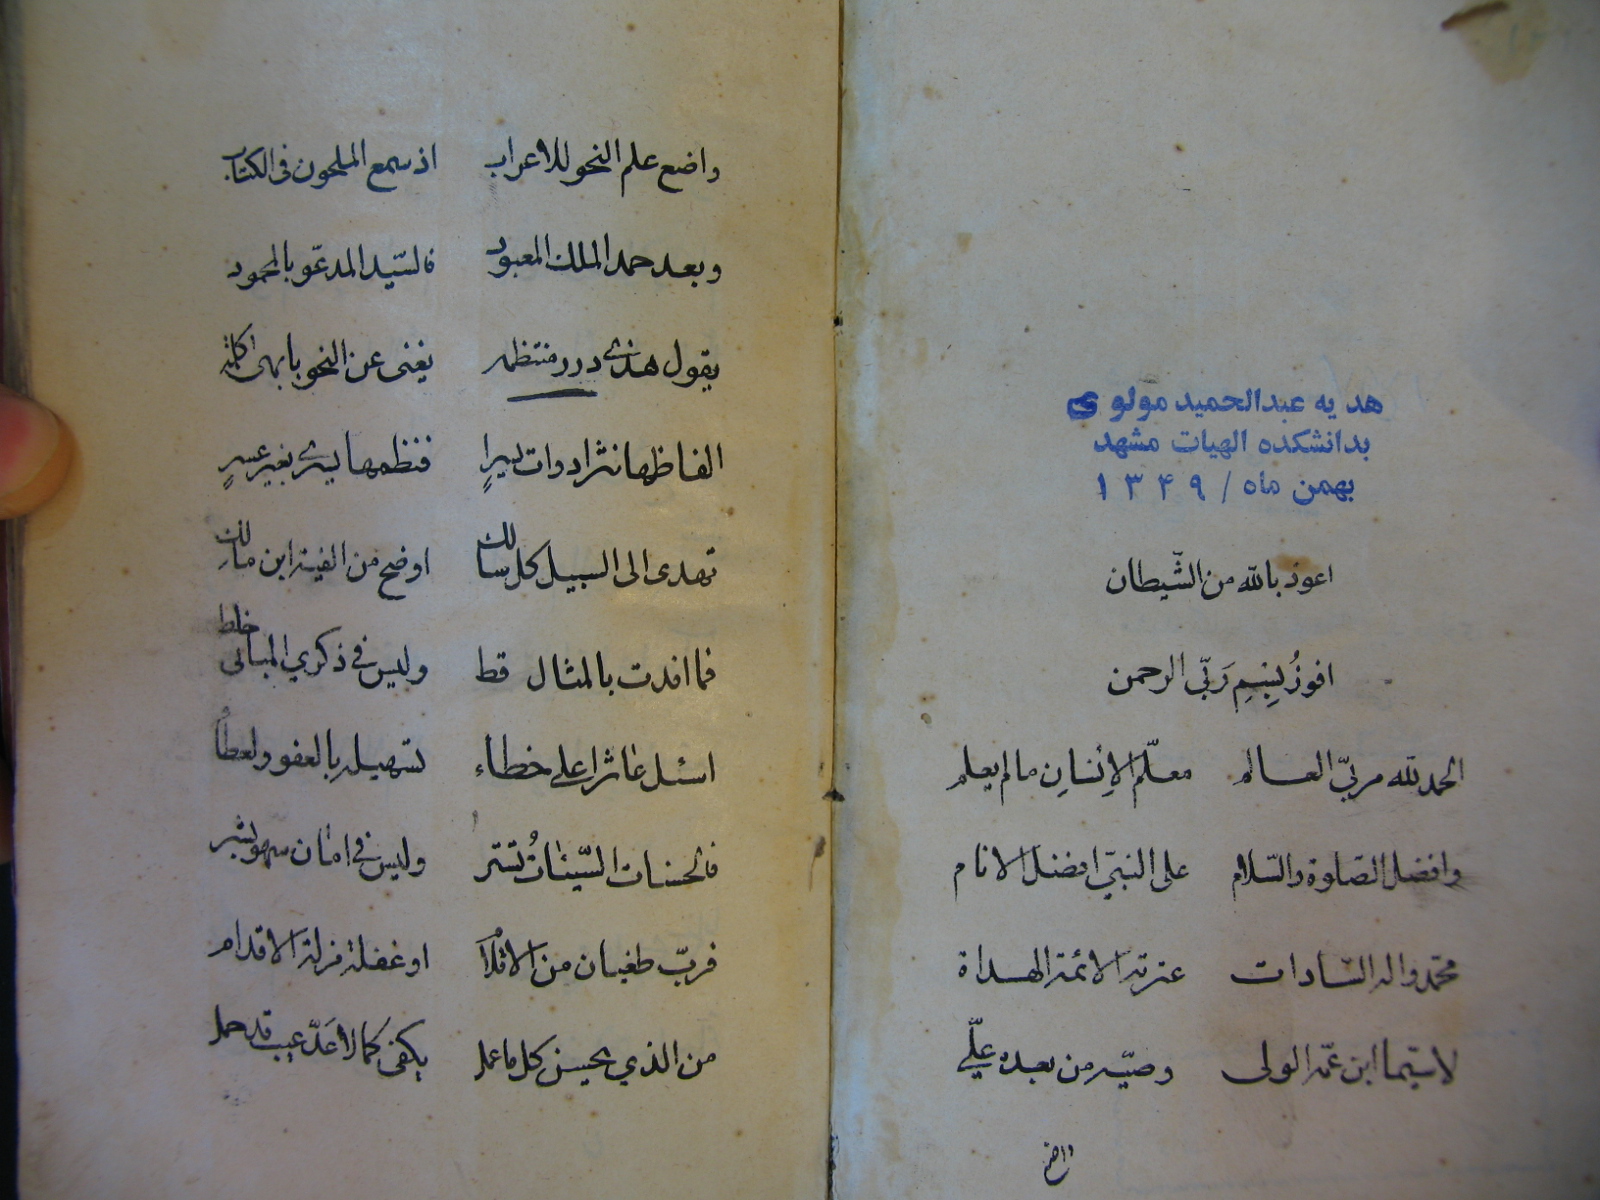 هديه عبدالحميد مولوی
بدانشكده الهيات مشهد
بهمن ماه / ۱۳۴۹
اعوذ بالله من الشّيطان
افوزُ بِبسمِ رَبّی الرحمن
الحمد لله مربّی العالم معلّم الاِنسانِ مالم يعلم
وافضل الصّلوة والسّلام علی النبیّ افضل الانام
محمّد واله السّادات عترته الائمة الهداة
لاسيّما ابن عمّه الولی وصيّه من بعده علیّ
واضع
واضع علم النحو للاعراب اذ سمع الملحون فی الكتاب
وبعد حمد الملك المعبود فالسّيد المدعّو بالمحمود
يقول هذی درر منتظمه يغنی عن النحو بابهی كلمة
الفاظها نثرا دوات فنظمها يسری بغير عسرٍ
تهدی الی السبيل كل سالك اوضح من الفية ابن مالك
فما افدت بالمثال قط وليس فی ذكری المبانی خلط
اسئل عاثرا علی خطاء تسهيله بالعفو ولعطاء
فالحسنات السّيئاتُ تستر وليس فی امان سهو بشر
فربّ طغيان من الاقلام او غفلة مزلة الاقدام
من الذي يحسن كل ما عمل يكفی كمالا عَدّ عيب قد حمل